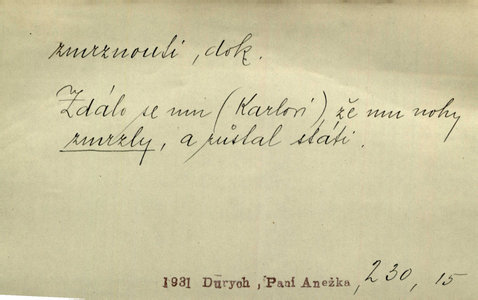 zmrznouti, dok.
Zdálo se mu (Karlovi), že mu nohy
zmrzly, a zůstal státi.
1931 Durych, Paní Anežka, 230, 15